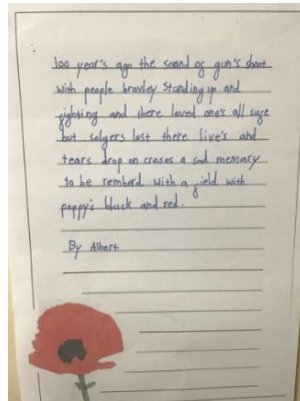 100 year's ago the sound of gun's shoot
with people bravley Standing up and
fighting and there loved one's all safe
but solgers lost there live's and
tears drop on croses a sad memary
to be remberd with a field with
poppy's black and red.
By Albert